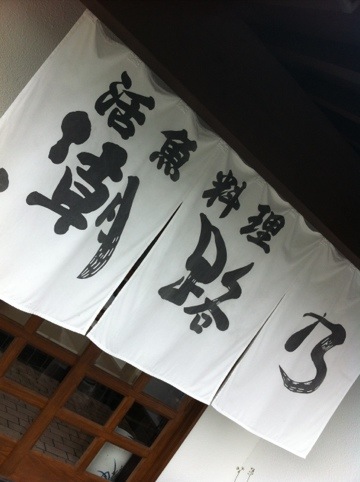 活魚料理
潮路乃